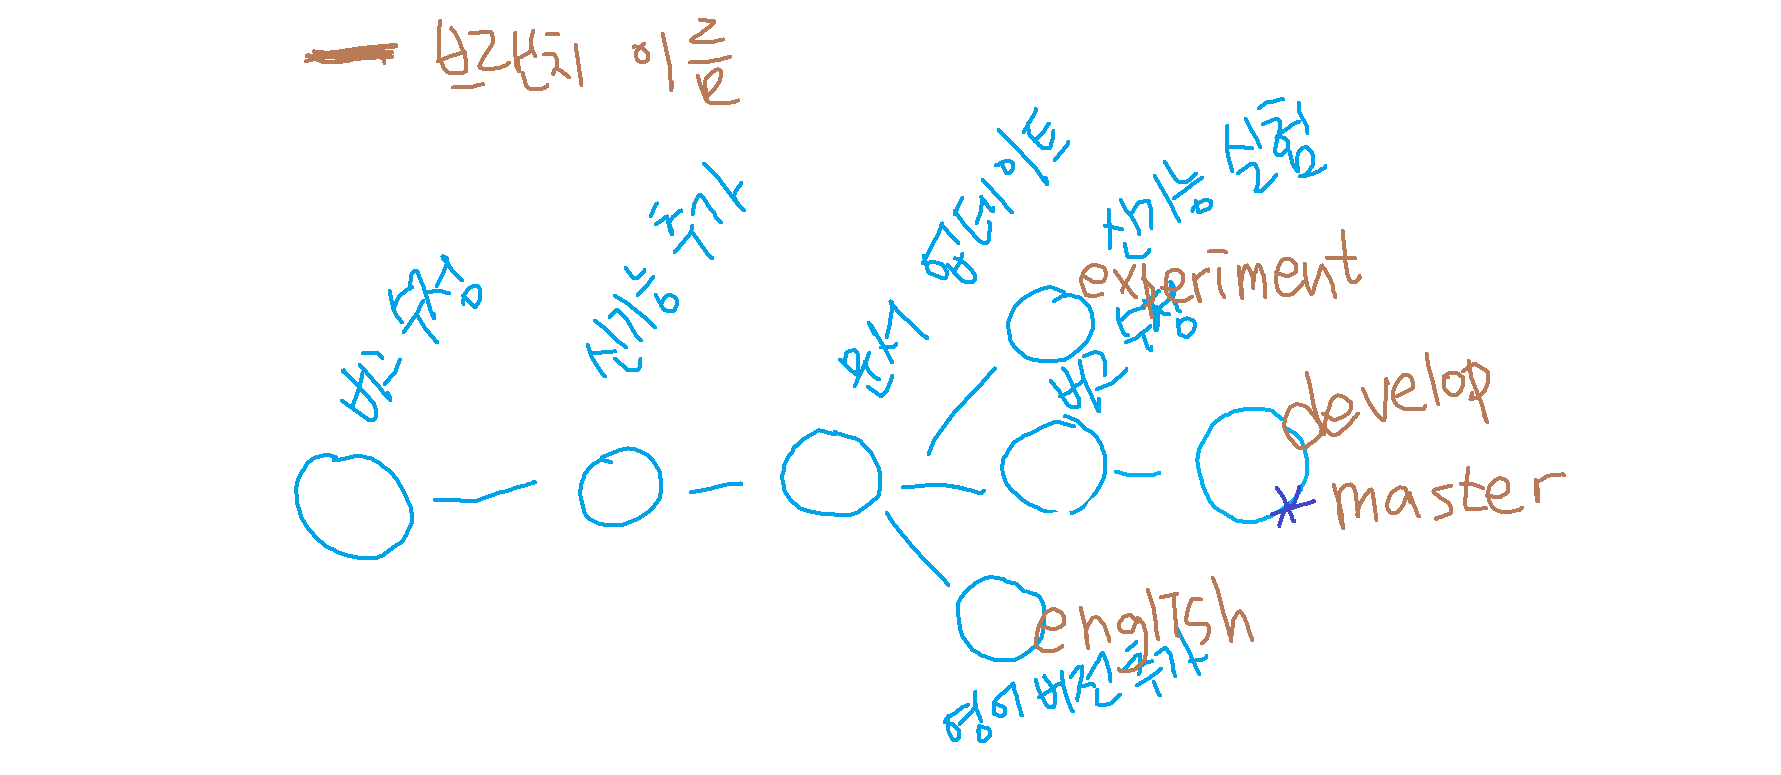 브랜치 이름
버그 수정
신기능 추가
문서 업데이트
신기능 실험
experiment
버그 수정
develop
* master
english
영어 버전 추가